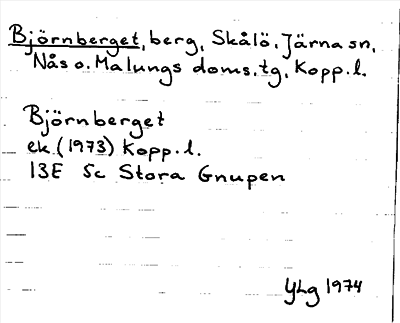 Björnberget, berg, Skålö, Järna sn,
Nås o. Malungs doms. tg, Kopp. l.
Björnberget
ek. (1973) Kopp. l.
13E 5c Stora Gnupen
YLg 1974